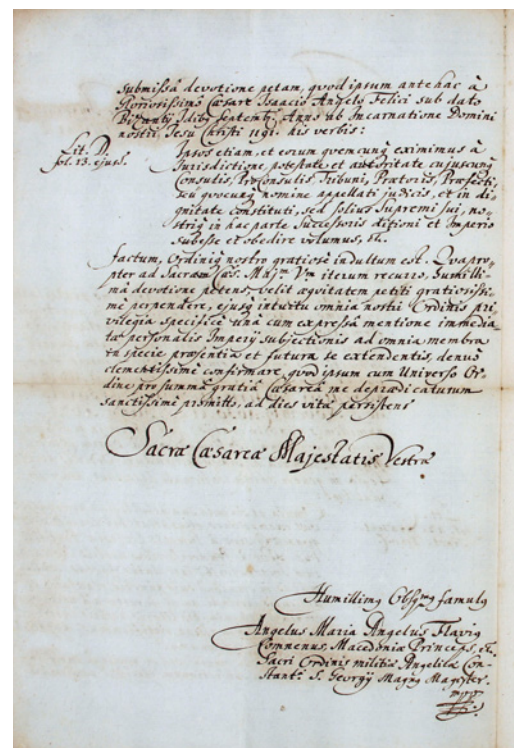 submissâ devotione petam, qvod ipsum antehac à
Gloriosissimo Cæsare Isaacio Angelo Felici sub dato
Bizantij Idib9 Septemb. Anno ab Incarnatione Domini
nostri Jesu Christi 1191. his verbis:
Lit. D.
fol. 13. ejusd.
Ipsos etiam, et eorum qvemcunq eximimus à
Jurisdictione, potestate et autoritate cujuscunq
Consulis, ProConsulis, Tribuni, Prætoris, Præfecti,
seu qvocunq nomine appellati judicis, et in di-
gnitate constituti, sed solius Supremi sui, no-
striq in hac parte Successoris ditioni et Imperio
subesse et obedire volumus, &c.
factum, Ordiniq nostro gratiose indultum est. Qvapro-
pter ad Sacram Cæs. Maj.m V.m iterum recurro, humilli-
mâ devotione petens, velit æqvitatem petiti gratiosissi-
mè perpendere, ejusq intuitu omnia nostri Ordinis pri-
vilegia specificè unâ cum expressâ mentione immedia
tæ personalis Imperij subjectionis ad omnia membra
in specie præsentia et futura se extendentis, denuò
clementissimè confirmare, qvod ipsum cum Universo Or-
dine pro summâ gratiâ Cæsareâ me deprædicaturum
sanctissimè promitto, ad dies vitæ persistens
Sacræ Cæsareæ Majestatis Vestræ
Humillim9 Obsq.m9 famul9
Angelus Maria Angelus Flavi9
Comnenus, Macedoniæ Princeps, &c.
Sacri Ordinis militiæ Angelicæ Con-
stant. S. Georgij Magn9 Magister
mpp